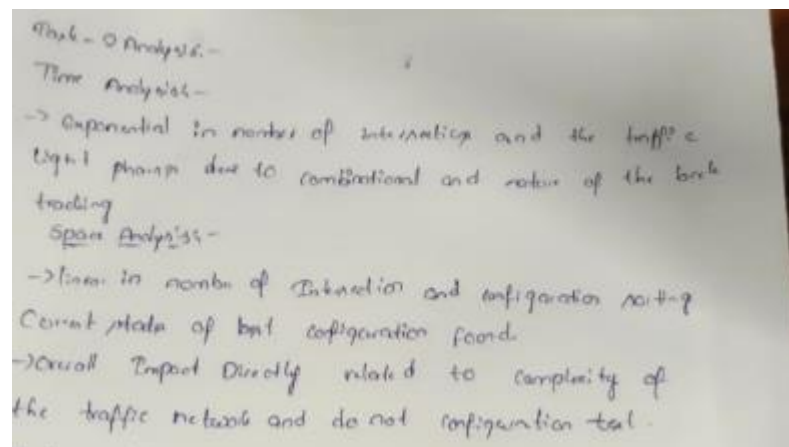 Task - 0 Analysis:-
Time Analysis:-
-> Exponential in number of intersections and the traffic
light phases due to combinational and nature of the back
tracking
Space Analysis:-
-> linear in number of Intersection and configuration
Current state of best configuration found.
-> Overall Impact Directly related to complexity of
the traffic network and do not configuration